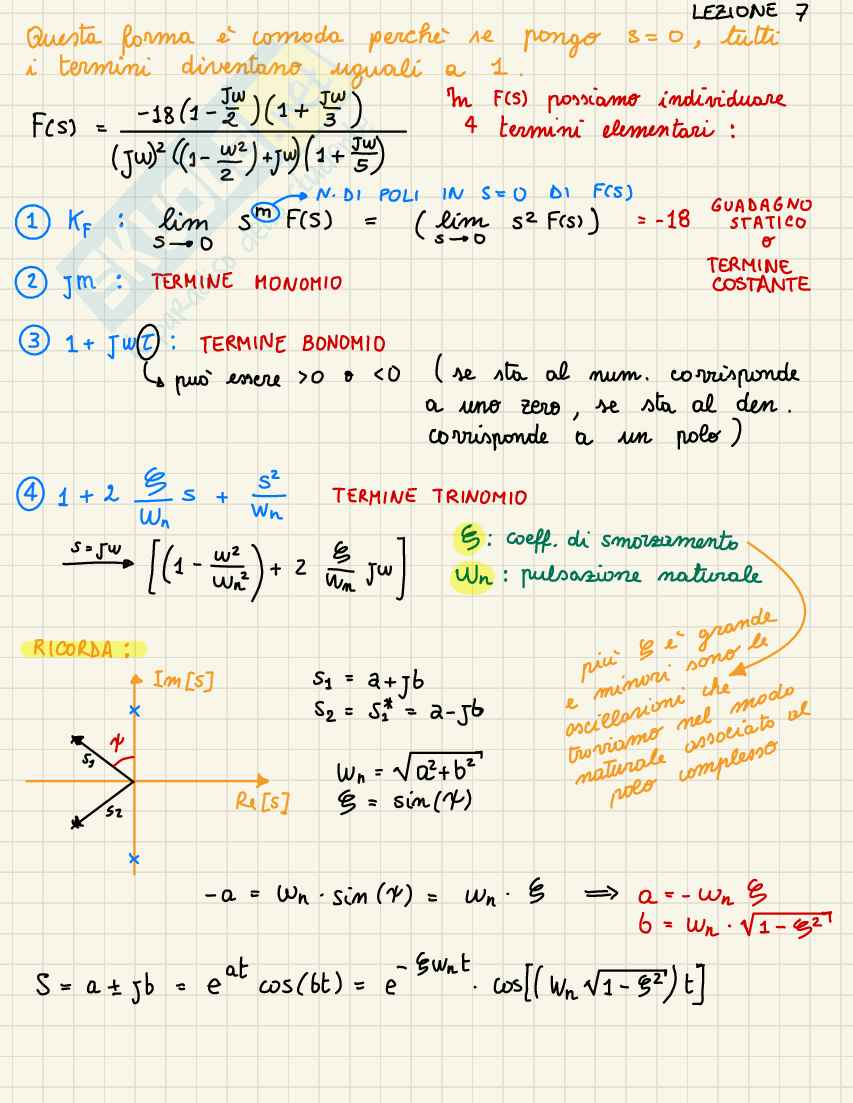 LEZIONE 7
Questa forma è comoda perchè se pongo s=0, tutti
i termini diventano uguali a 1.
F(s) = \frac{-18(1-\frac{Jω}{2})(1+\frac{Jω}{3})}{(Jω)^2((1-\frac{ω^2}{2})+Jω)(1+\frac{Jω}{5})}
In F(s) possiamo individuare
4 termini elementari:
N. DI POLI IN S=0 DI F(S)
① K_F : lim_{s→0} s^m F(s) = (lim_{s→0} s^2 F(s)) = -18 GUADAGNO
STATICO
o
TERMINE
COSTANTE
② Jm : TERMINE MONOMIO
③ 1+Jωτ : TERMINE BONOMIO
↳ può essere >0 o <0 (se sta al num. corrisponde
a uno zero, se sta al den.
corrisponde a un polo)
④ 1+2 \frac{ξ}{ω_n} s + \frac{s^2}{ω_n} TERMINE TRINOMIO
s=Jω → [(1-\frac{ω^2}{ω_n^2})+2 \frac{ξ}{ω_n} Jω]
ξ: coeff. di smorzamento
ω_n: pulsazione naturale
più ξ è grande
e minori sono le
oscillazioni che
troviamo nel modo
naturale associato al
polo complesso
RICORDA:
Im[s]
Re[s]
s_1
s_2
ψ
s_1 = a+Jb
s_2 = s_1^* = a-Jb
ω_n = √(a^2+b^2)
ξ = sin(ψ)
-a = ω_n · sin(ψ) = ω_n · ξ ⟹ a = -ω_n ξ
b = ω_n · √(1-ξ^2)
S = a ± Jb = e^{at} cos(bt) = e^{-ξω_n t} · cos[(ω_n √(1-ξ^2))t]